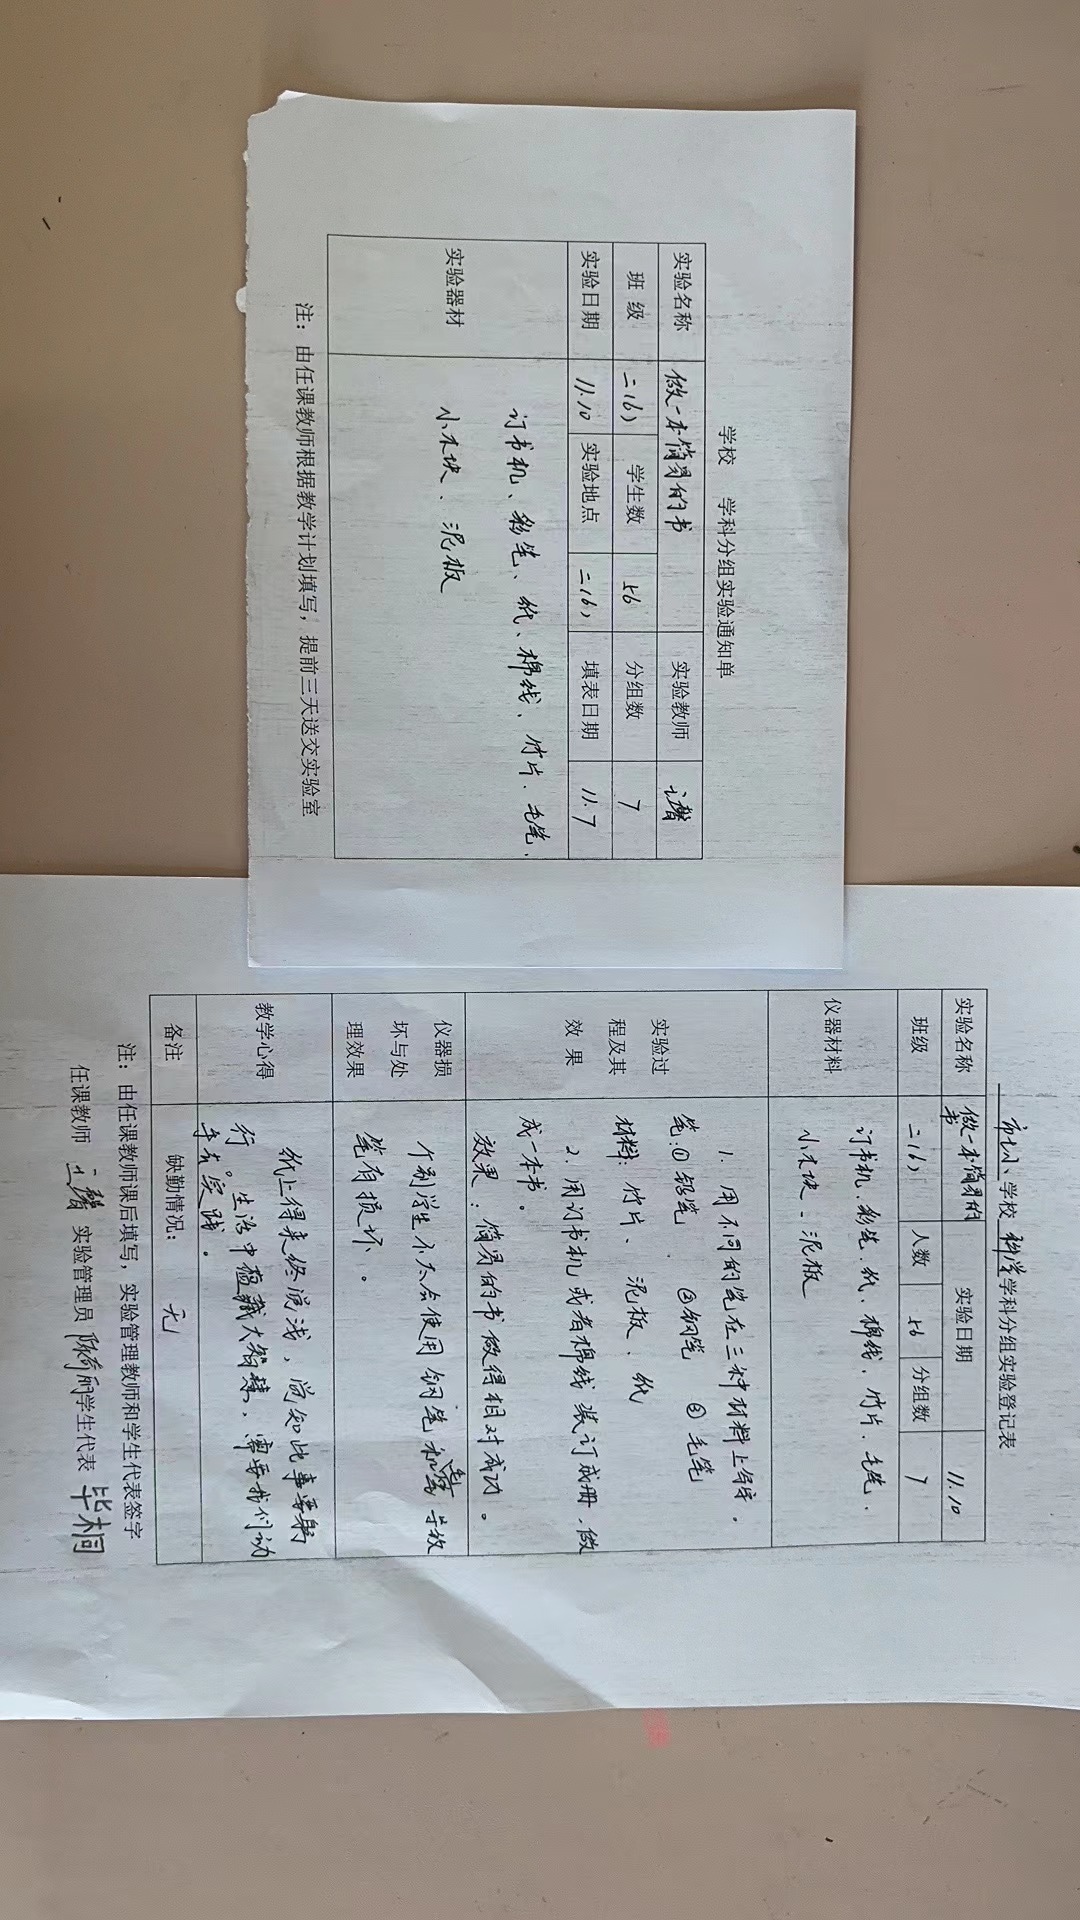 学校 学科分组实验通知单
实验名称 做一本简易的书 实验教师
班 级 二(6) 学生数 56 分组数 7
实验日期 11.10 实验地点 二(6) 填表日期 11.7
实验器材
订书机、彩笔、纸、棉线、竹片、毛笔、
小木块、泥板
注：由任课教师根据教学计划填写，提前三天送交实验室
学校 科学 学科分组实验登记表
实验名称 做一本简易的书 实验日期 11.10
班级 二(6) 人数 56 分组数 7
仪器材料
订书机、彩笔、纸、棉线、竹片、毛笔、
小木块、泥板
实验过
程及其
效 果
1. 用不同的笔在三种材料上写字。
笔:①铅笔 ②钢笔 ③毛笔
材料: 竹片、泥板、纸
2. 用订书机或者棉线装订成册，做
成一本书。
效果：简易的书做得相对成功。
仪器损
坏与处
理效果
个别学生不太会使用钢笔 导致
笔有损坏。
教学心得
纸上得来终觉浅，觉知此事要躬
行。生活中蕴藏大智慧，需要我们动
手去实践。
备注 缺勤情况： 无
注：由任课教师课后填写，实验管理教师和学生代表签字
任课教师 实验管理员 学生代表 毕桐